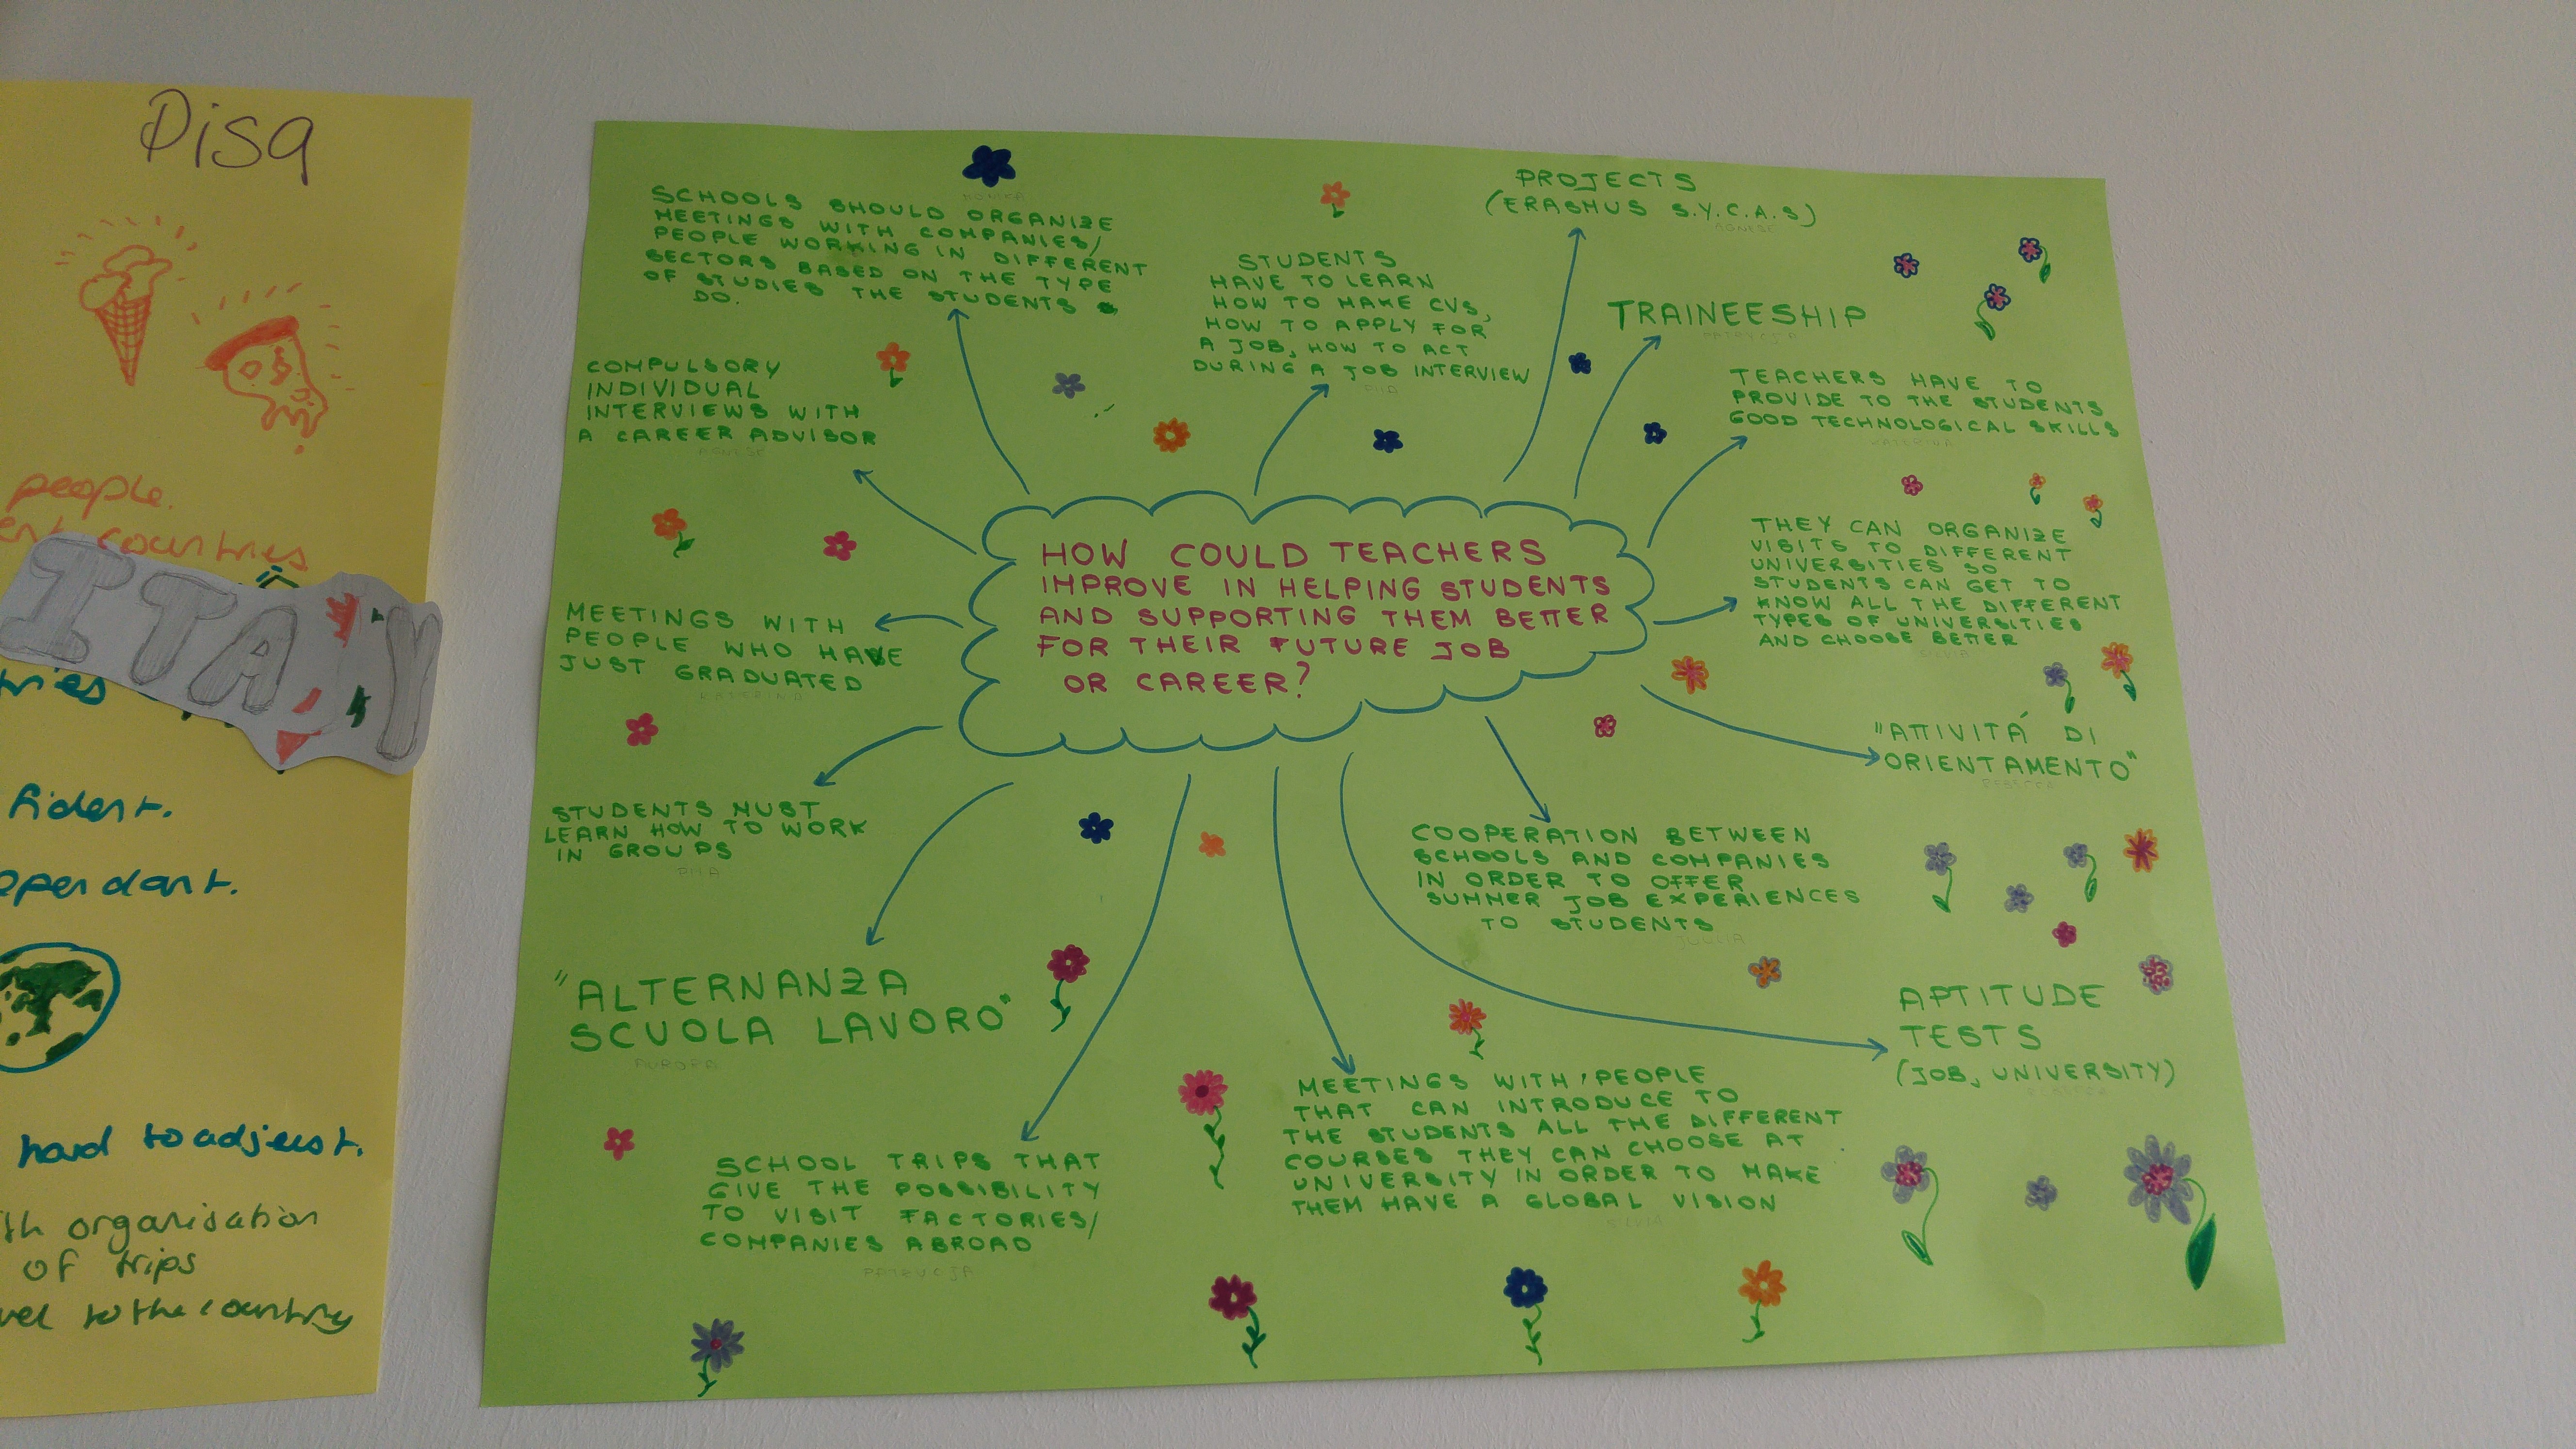 Pisa
people.
countries
ITALY
hard to adjust.
organisation
of trips
to the country
SCHOOLS SHOULD ORGANIZE
MEETINGS WITH COMPANIES/
PEOPLE WORKING IN DIFFERENT
SECTORS BASED ON THE TYPE
OF STUDIES THE STUDENTS
DO.
MONIKA
STUDENTS
HAVE TO LEARN
HOW TO MAKE CVS,
HOW TO APPLY FOR
A JOB, HOW TO ACT
DURING A JOB INTERVIEW
PIIA
PROJECTS
(ERASMUS S.Y.C.A.S)
AGNESE
TRAINEESHIP
PATRYCJA
TEACHERS HAVE TO
PROVIDE TO THE STUDENTS
GOOD TECHNOLOGICAL SKILLS
KATERINA
COMPULSORY
INDIVIDUAL
INTERVIEWS WITH
A CAREER ADVISOR
AGNESE
HOW COULD TEACHERS
IMPROVE IN HELPING STUDENTS
AND SUPPORTING THEM BETTER
FOR THEIR FUTURE JOB
OR CAREER?
THEY CAN ORGANIZE
VISITS TO DIFFERENT
UNIVERSITIES SO
STUDENTS CAN GET TO
KNOW ALL THE DIFFERENT
TYPES OF UNIVERSITIES
AND CHOOSE BETTER
SILVIA
MEETINGS WITH
PEOPLE WHO HAVE
JUST GRADUATED
KATERINA
"ATTIVITÁ DI
ORIENTAMENTO"
REBECCA
STUDENTS MUST
LEARN HOW TO WORK
IN GROUPS
PIIA
COOPERATION BETWEEN
SCHOOLS AND COMPANIES
IN ORDER TO OFFER
SUMMER JOB EXPERIENCES
TO STUDENTS
"ALTERNANZA
SCUOLA LAVORO"
AURORA
APTITUDE
TESTS
(JOB, UNIVERSITY)
SCHOOL TRIPS THAT
GIVE THE POSSIBILITY
TO VISIT FACTORIES/
COMPANIES ABROAD
PATRYCJA
MEETINGS WITH PEOPLE
THAT CAN INTRODUCE TO
THE STUDENTS ALL THE DIFFERENT
COURSES THEY CAN CHOOSE AT
UNIVERSITY IN ORDER TO MAKE
THEM HAVE A GLOBAL VISION
SILVIA